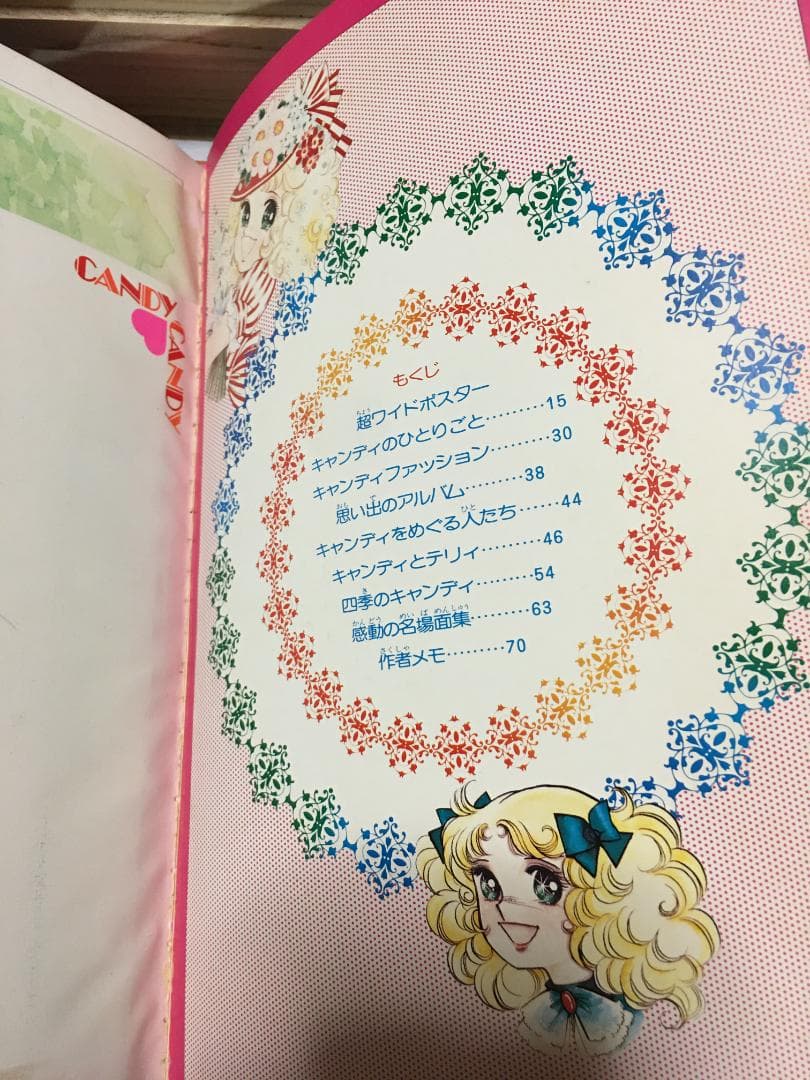 CANDY
CANDY
もくじ
超ワイドポスター
キャンディのひとりごと………15
キャンディファッション………30
思い出のアルバム………38
キャンディをめぐる人たち……44
キャンディとテリィ………46
四季のキャンディ………54
感動の名場面集………63
作者メモ………70